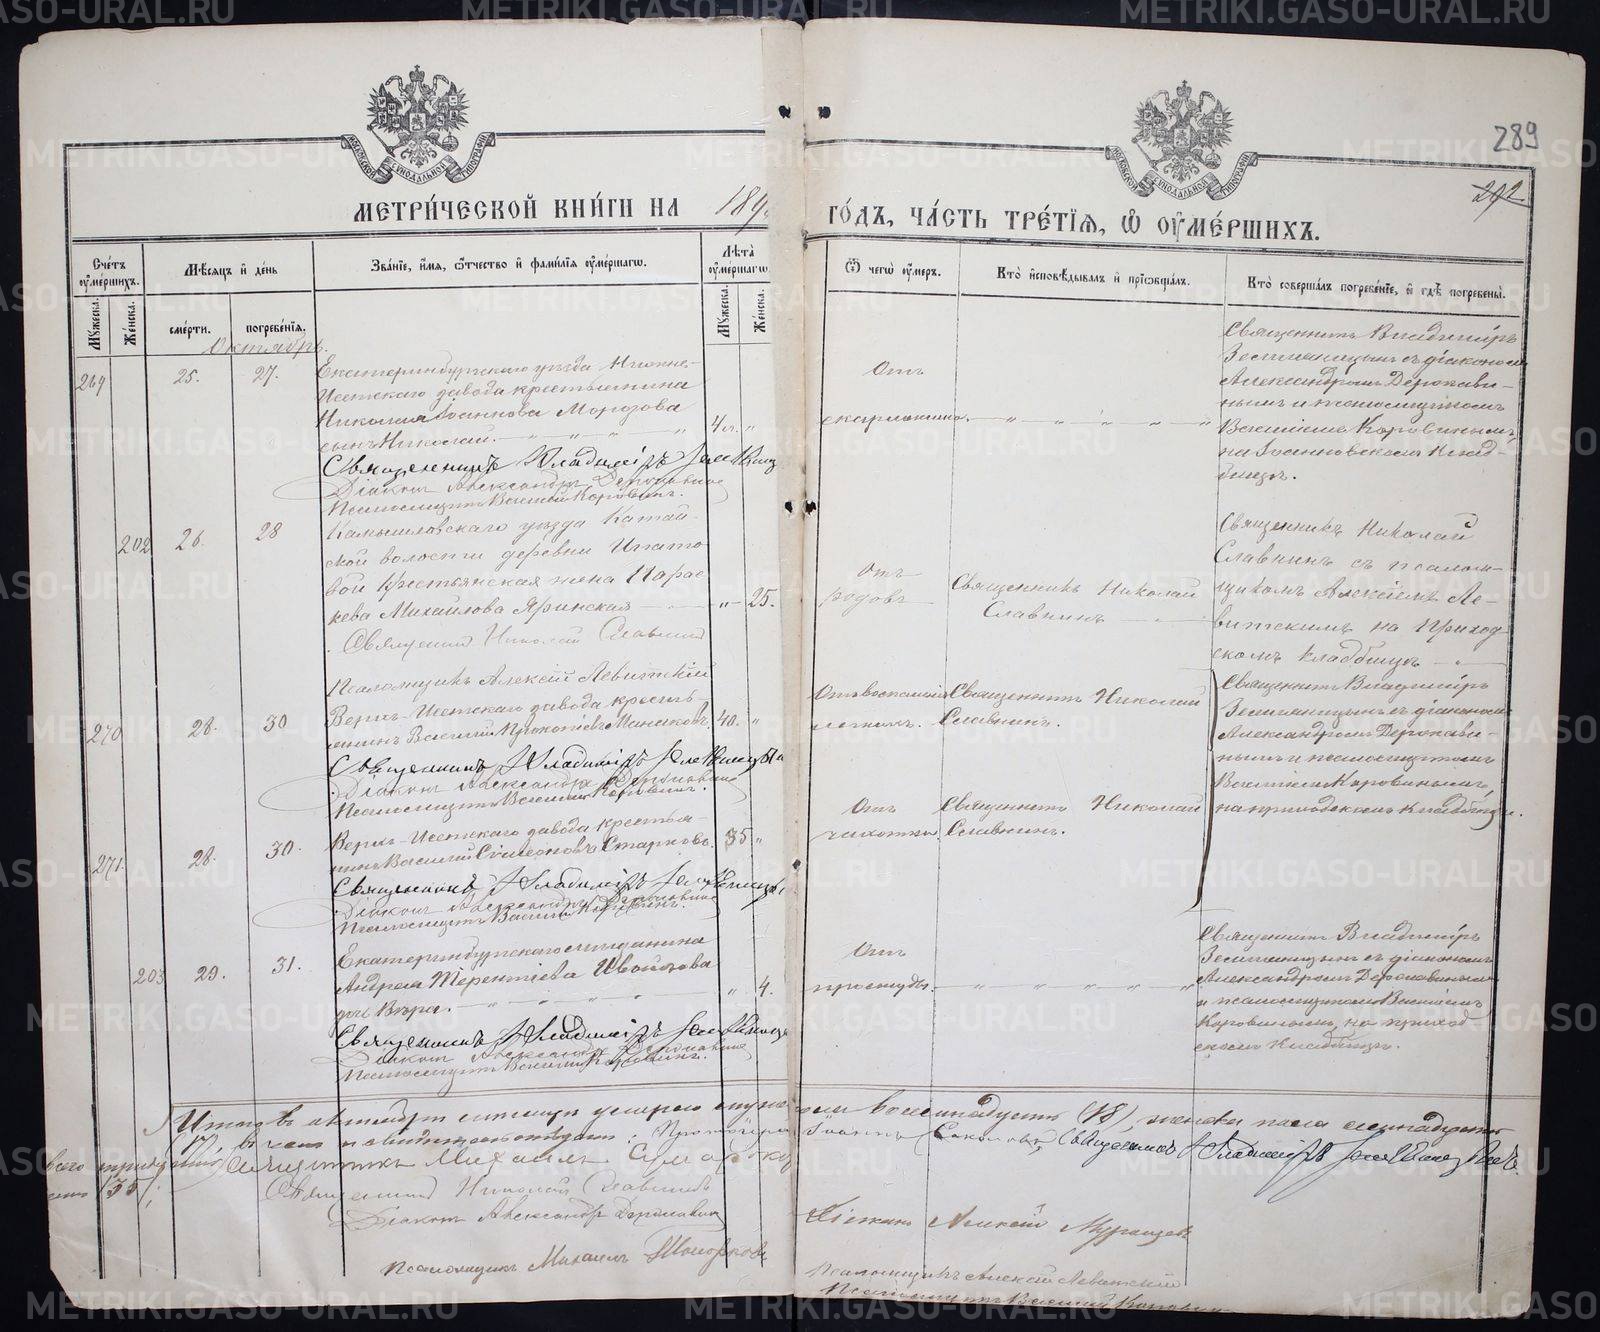 289
292
МЕТРИ́ЧЕСКОЙ КНИ́ГИ НА 189
ГО́ДЪ, ЧА́СТЬ ТРЕ́ТІЯ, Ѡ ОУ҆МЕ́РШИХЪ.
МОСКОВСКОЙ СѴНОДАЛЬНОЙ ТИПОГРАФІИ
Сче́тъ оу҆ме́ршихъ.
Мꙋ́жеска.
Же́нска.
Мѣ́сяцъ и де́нь
сме́рти.
погребе́нїя.
Зва́нїе, и҆́мя, ѻ҆́тчество и фами́лїя оу҆ме́ршагѡ.
Лѣ́та оу҆ме́ршагѡ.
Мꙋ́жеска.
Же́нска.
Ѿ чегѡ̀ оу҆́меръ.
Кто̀ и҆сповѣ́дывалъ и прїѡбща́лъ.
Кто̀ соверша́лъ погребе́нїе, и гдѣ̀ погребены̀.
Октябрь.
269 25. 27.
Екатеринбургскаго уѣзда Нижне-
Исетскаго завода крестьянина
Николая Іоаннова Морозова
сынъ Николай. 4 л. "
Священникъ Владиміръ
Діаконъ Александръ Державинъ
Псаломщикъ Василій Коровинъ.
Отъ
скарлатины.
Священникъ Владиміръ
Земляницынъ съ діакономъ
Александромъ Держави-
нымъ и псаломщикомъ
Василіемъ Коровинымъ,
на Іоанновскомъ клад-
бищѣ.
202 26. 28
Камышловскаго уѣзда Катай-
ской волости деревни Ипато-
вой крестьянская жена Парас-
кева Михайлова Яринская " 25.
Священникъ Николай Славнинъ
Псаломщикъ Алексій Левитскій
Отъ
родовъ
Священникъ Николай
Славнинъ
Священникъ Николай
Славнинъ съ псалом-
щикомъ Алексіемъ Ле-
витскимъ на Приход-
скомъ кладбищѣ
270 28. 30
Верхъ-Исетскаго завода кресть-
янинъ Василій Прокопіевъ 40. "
Священникъ Владиміръ
Діаконъ Александръ Державинъ
Псаломщикъ Василій Коровинъ.
Отъ воспаленія
легкихъ.
Священникъ Николай
Славнинъ.
Священникъ Владиміръ
Земляницынъ съ діакономъ
Александромъ Держави-
нымъ и псаломщикомъ
Василіемъ Коровинымъ,
на приходскомъ кладбищѣ.
271 28. 30.
Верхъ-Исетскаго завода крестья-
нинъ Василій Сѵмеоновъ Старковъ. 35 "
Священникъ Владиміръ
Діаконъ Александръ Державинъ
Псаломщикъ Василій Коровинъ.
Отъ
чахотки.
Священникъ Николай
Славнинъ.
203 29. 31.
Екатеринбургскаго мѣщанина
Андрея Терентіева
дочь Вѣра. " 4.
Священникъ Владиміръ
Діаконъ Александръ Державинъ
Псаломщикъ Василій Коровинъ.
Отъ
простуды.
Священникъ Владиміръ
Земляницынъ съ діакономъ
Александромъ Державинымъ
и псаломщикомъ Василіемъ
Коровинымъ, на приход-
скомъ кладбищѣ.
Итого въ октябрѣ мѣсяцѣ умерло мужескаго пола восемнадцать (18), женска пола семнадцать
(17), Протоіерей Іоаннъ Священникъ Владиміръ
всего тридцать (35).
Священникъ Михаилъ
Священникъ Николай Славнинъ
Діаконъ Александръ Державинъ
Діаконъ Алексій
Псаломщикъ Михаилъ
Псаломщикъ Алексій Левитскій
Псаломщикъ Василій Коровинъ
METRIKI.GASO-URAL.RU